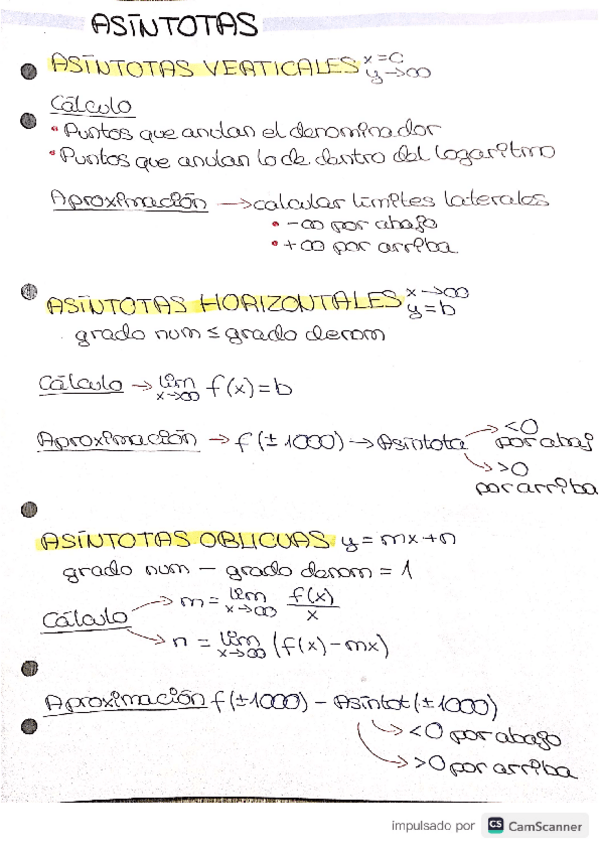 ASÍNTOTAS
ASÍNTOTAS VERTICALES x=c
y→∞
Cálculo
• Puntos que anulan el denominador
• Puntos que anulan lo de dentro del logaritmo
Aproximación → calcular límites laterales
• -∞ por abajo
• +∞ por arriba
ASÍNTOTAS HORIZONTALES x→∞
y=b
grado num ≤ grado denom
Cálculo → lim x→∞ f(x)=b
Aproximación → f(±1000) → Asíntota → <0 por abaj
→ >0
por arriba
ASÍNTOTAS OBLICUAS y=mx+n
grado num - grado denom = 1
Cálculo → m = lim x→∞ f(x)/x
→ n = lim x→∞ (f(x)-mx)
Aproximación f(±1000) - Asíntot(±1000)
→ <0 por abajo
→ >0 por arriba
impulsado por CS CamScanner